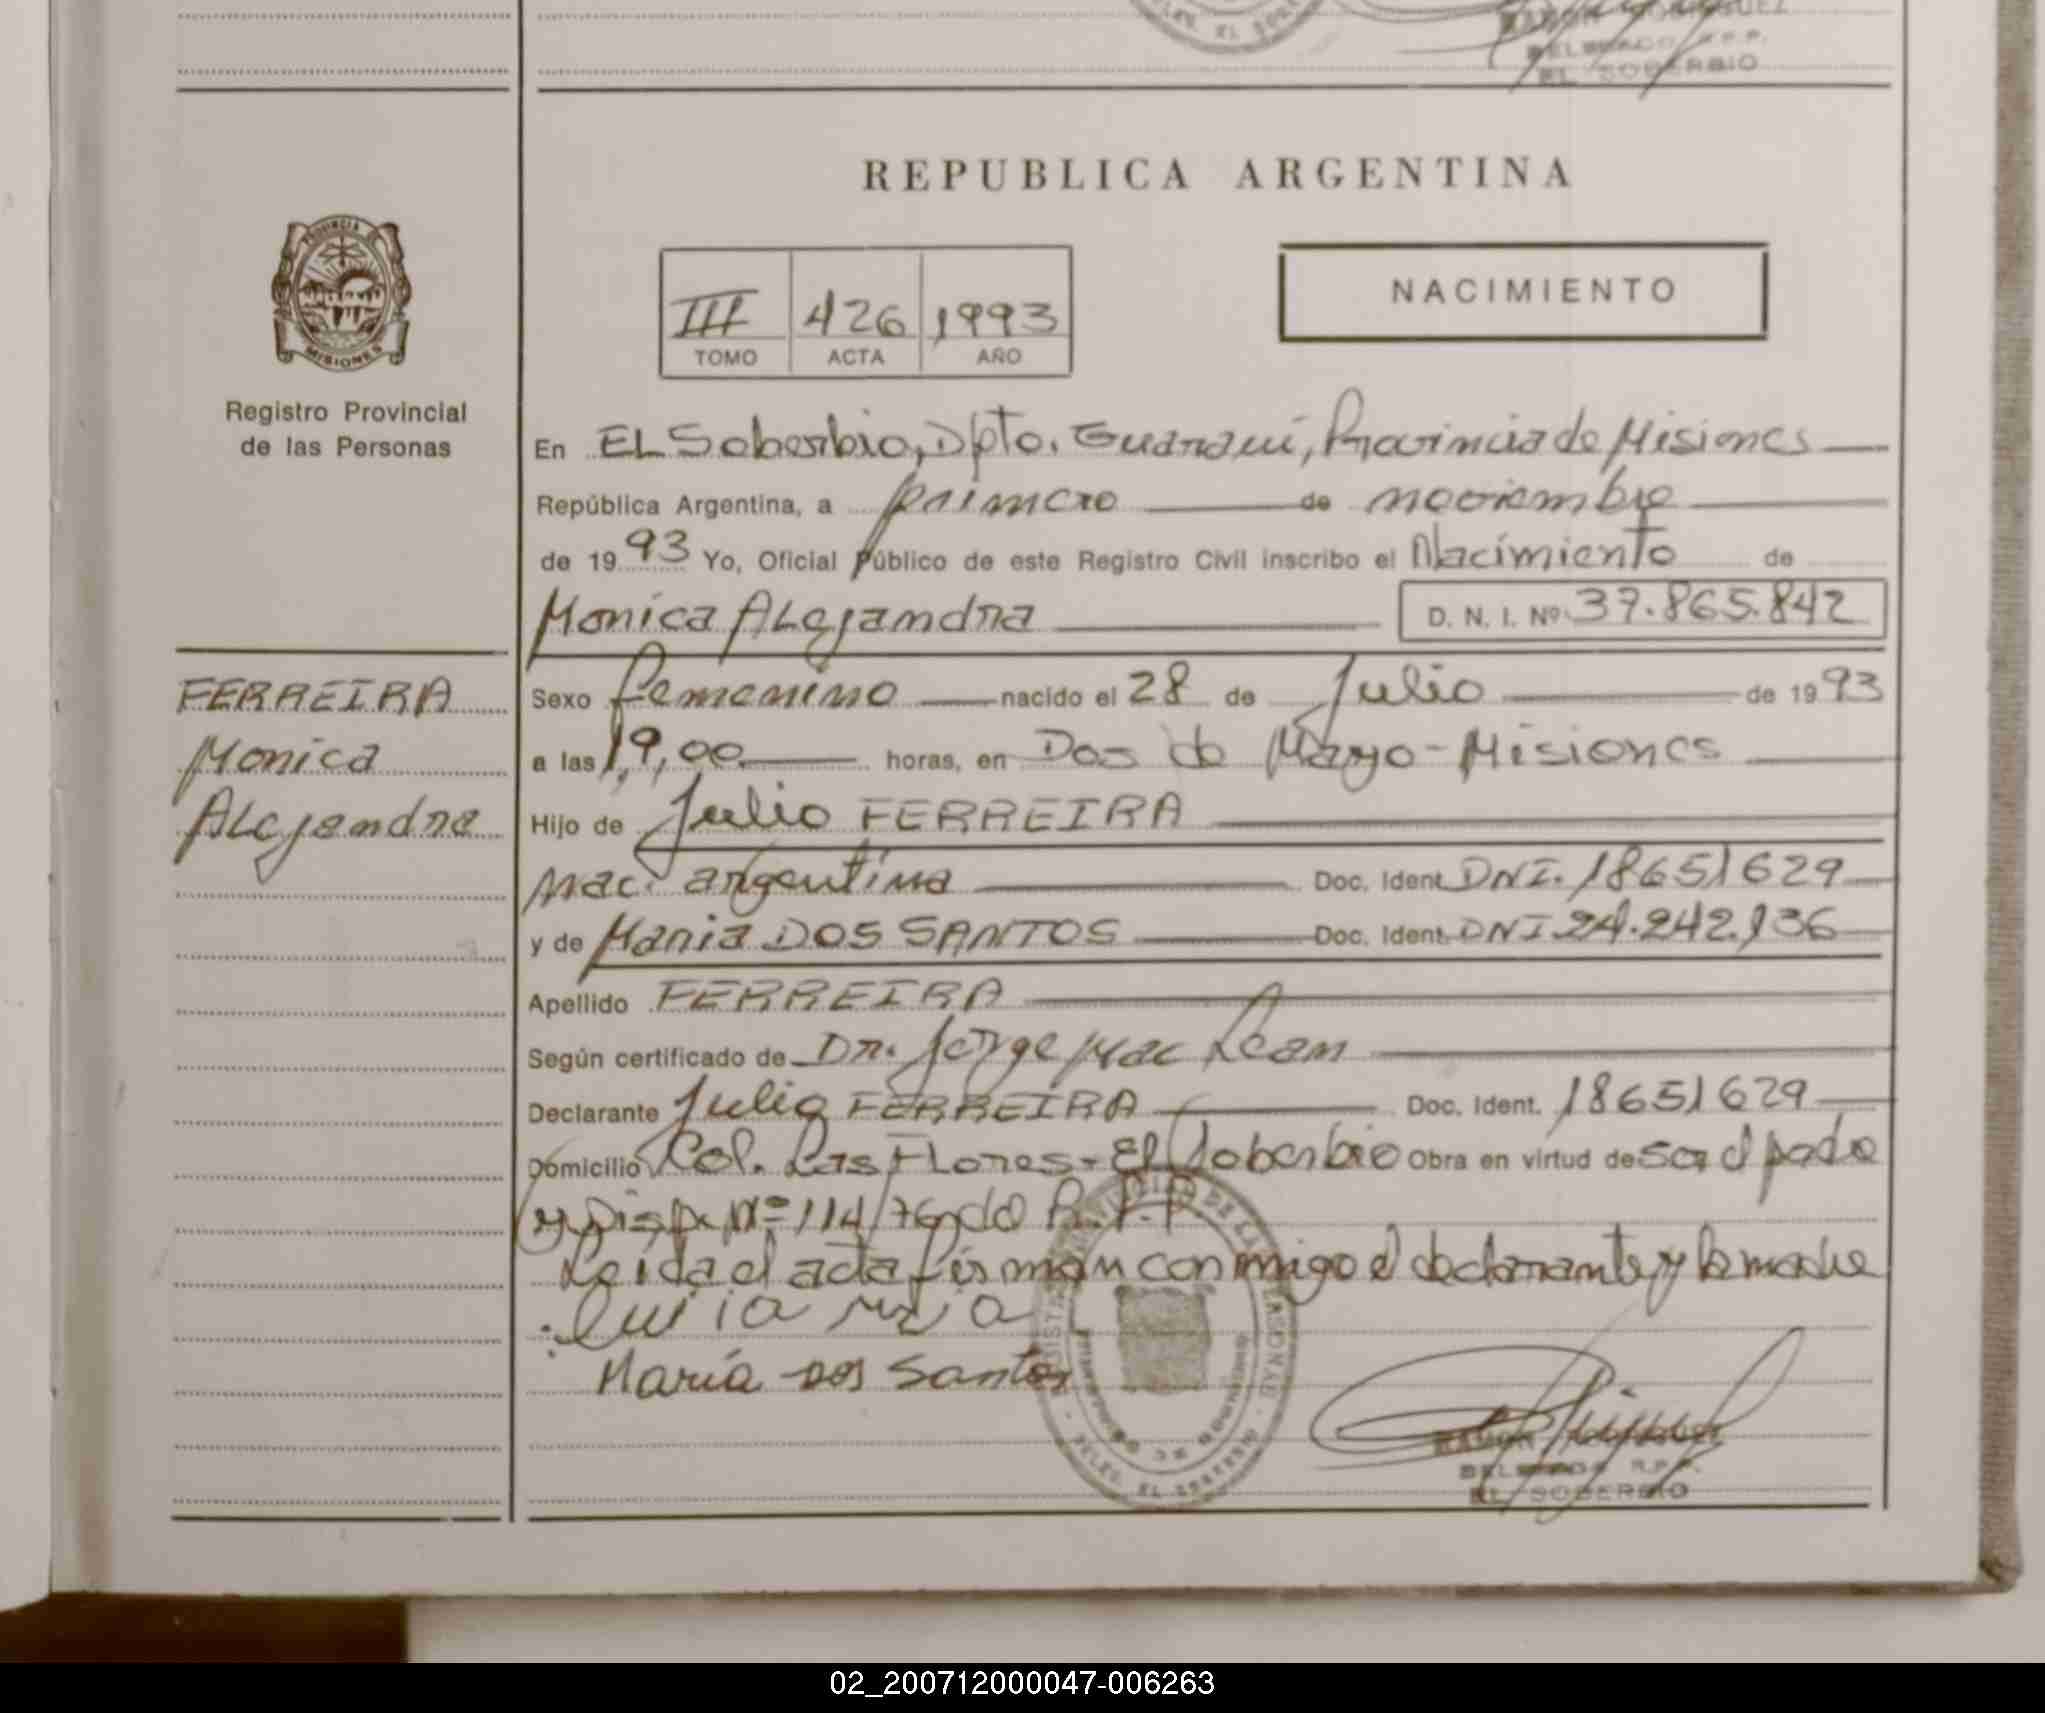 RAMON RODRIGUEZ
DELEGADO R.P.P.
EL SOBERBIO
REPUBLICA ARGENTINA
PROVINCIA DE
MISIONES
Registro Provincial
de las Personas
III 426 1993
TOMO ACTA AÑO
NACIMIENTO
En EL Soberbio, Dpto. Guaraní, Provincia de Misiones
República Argentina, a primero de noviembre
de 1993 Yo, Oficial Público de este Registro Civil inscribo el Nacimiento de
Monica ALejandra D. N. I. Nº 37.865.842
FERREIRA
Monica
ALejandra
Sexo femenino nacido el 28 de Julio de 1993
a las 19,00 horas, en Dos de Mayo - Misiones
Hijo de Julio FERREIRA
nac. argentina Doc. Ident. DNI. 18651629
y de Maria DOS SANTOS Doc. Ident. DNI 24.242.136
Apellido FERREIRA
Según certificado de Dr. Jorge Mac Lean
Declarante Julio FERREIRA Doc. Ident. 18651629
Domicilio Col. Las Flores - El Soberbio Obra en virtud de ser el padre
y Disp. Nº 114/76 del R.P.P
Leida el acta firman conmigo el declarante y la madre
María dos Santos
RAMON RODRIGUEZ
DELEGADO R.P.P.
EL SOBERBIO
02_200712000047-006263